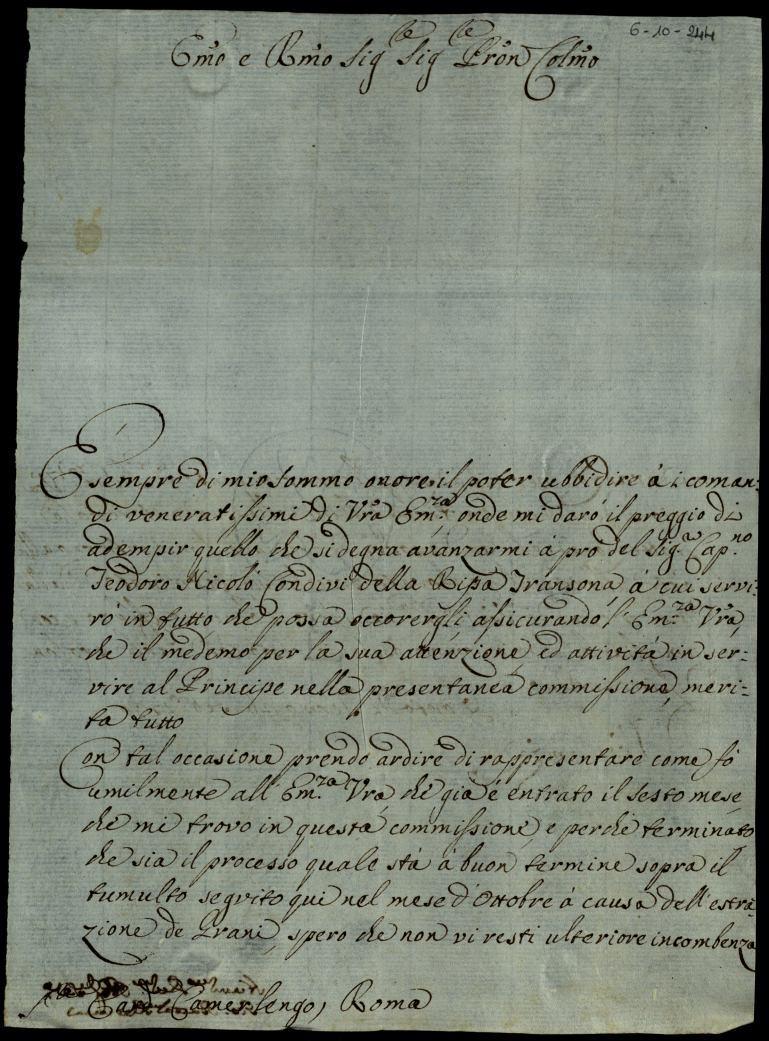 6-10-244
Emo e Rmo Sig.re Sig.re Pron Colmo
E sempre di mio sommo onore il poter ubbidire á i coman:
di veneratissimi di Vra Em.za onde mi daró il preggio di
adempir quello che si degna avanzarmi á pro del Sig.r Cap.no
Teodoro Nicoló Condivi della Ripa Transona á cui servi:
ró in tutto che possa occorergli assicurando l'Em.za Vra,
che il medemo per la sua attenzione, ed attivitá in ser:
vire al Principe nella presentanea commissione, meri:
ta tutto
Con tal occasione prendo ardire di rappresentare come fó
umilmente all'Em.za Vra che giá é entrato il sesto mese,
che mi trovo in questa commissione, e perche terminato
che sia il processo quale stá á buon termine sopra il
tumulto seguito qui nel mese d'Ottobre á causa dell'estra:
zione de Grani, spero che non vi resti ulteriore incombenza
Card. Camerlengo, Roma